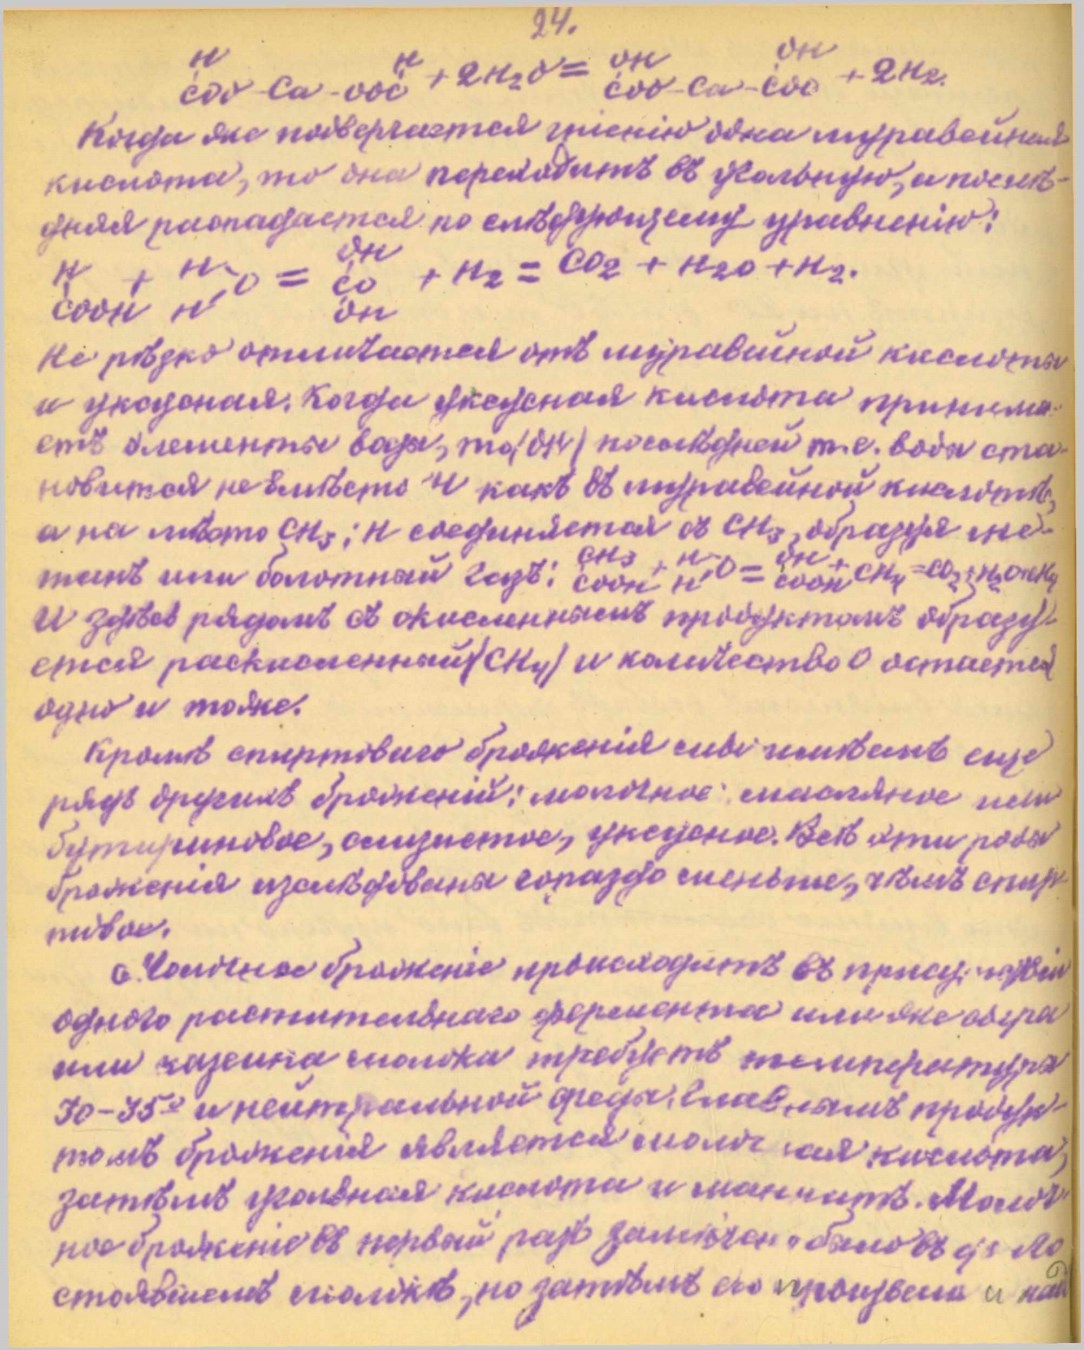 24.
H H OH OH
COO-Ca-OOC + 2H2O = COO-Ca-COO + 2H2.
Когда же подвергается гніенію одна муравейная
кислота, то она переходитъ въ угольную, а послѣ-
дняя распадается по слѣдующему уравненію:
H + H OH
COOH H O = CO + H2 = CO2 + H2O + H2.
OH
Не рѣзко отличается отъ муравейной кислоты
и уксусная. Когда уксусная кислота принима-
етъ элементы воды, то (OH) послѣдней т.е. воды ста-
новится не вмѣсто H какъ въ муравейной кислотѣ,
а на мѣсто CH3; H соединяется съ CH3, образуя ме-
танъ или болотный газъ: CH3 COOH + H H O = OH COOH + CH4 = CO2 + H2O + CH4
И здѣсь рядомъ съ окисленнымъ продуктомъ образу-
ется раскисленный (CH4) и количество O остается
одно и тоже.
Кромѣ спиртоваго броженія мы имѣемъ еще
рядъ другихъ броженій: молочное, масляное или
бутириновое, слизистое, уксусное. Всѣ эти роды
броженія изслѣдованы гораздо меньше, чѣмъ спир-
товое.
Молочное броженіе происходитъ въ присутствіи
одного растительнаго фермента или же сыра
или казеина молока требуетъ температуры
30-35° и нейтральной среды. Главнымъ продук-
томъ броженія является молочная кислота,
затѣмъ угольная кислота и маннитъ. Молоч-
ное броженіе въ первый разъ замѣчено было въ
стоявшемъ молокѣ, но затѣмъ его произвели и